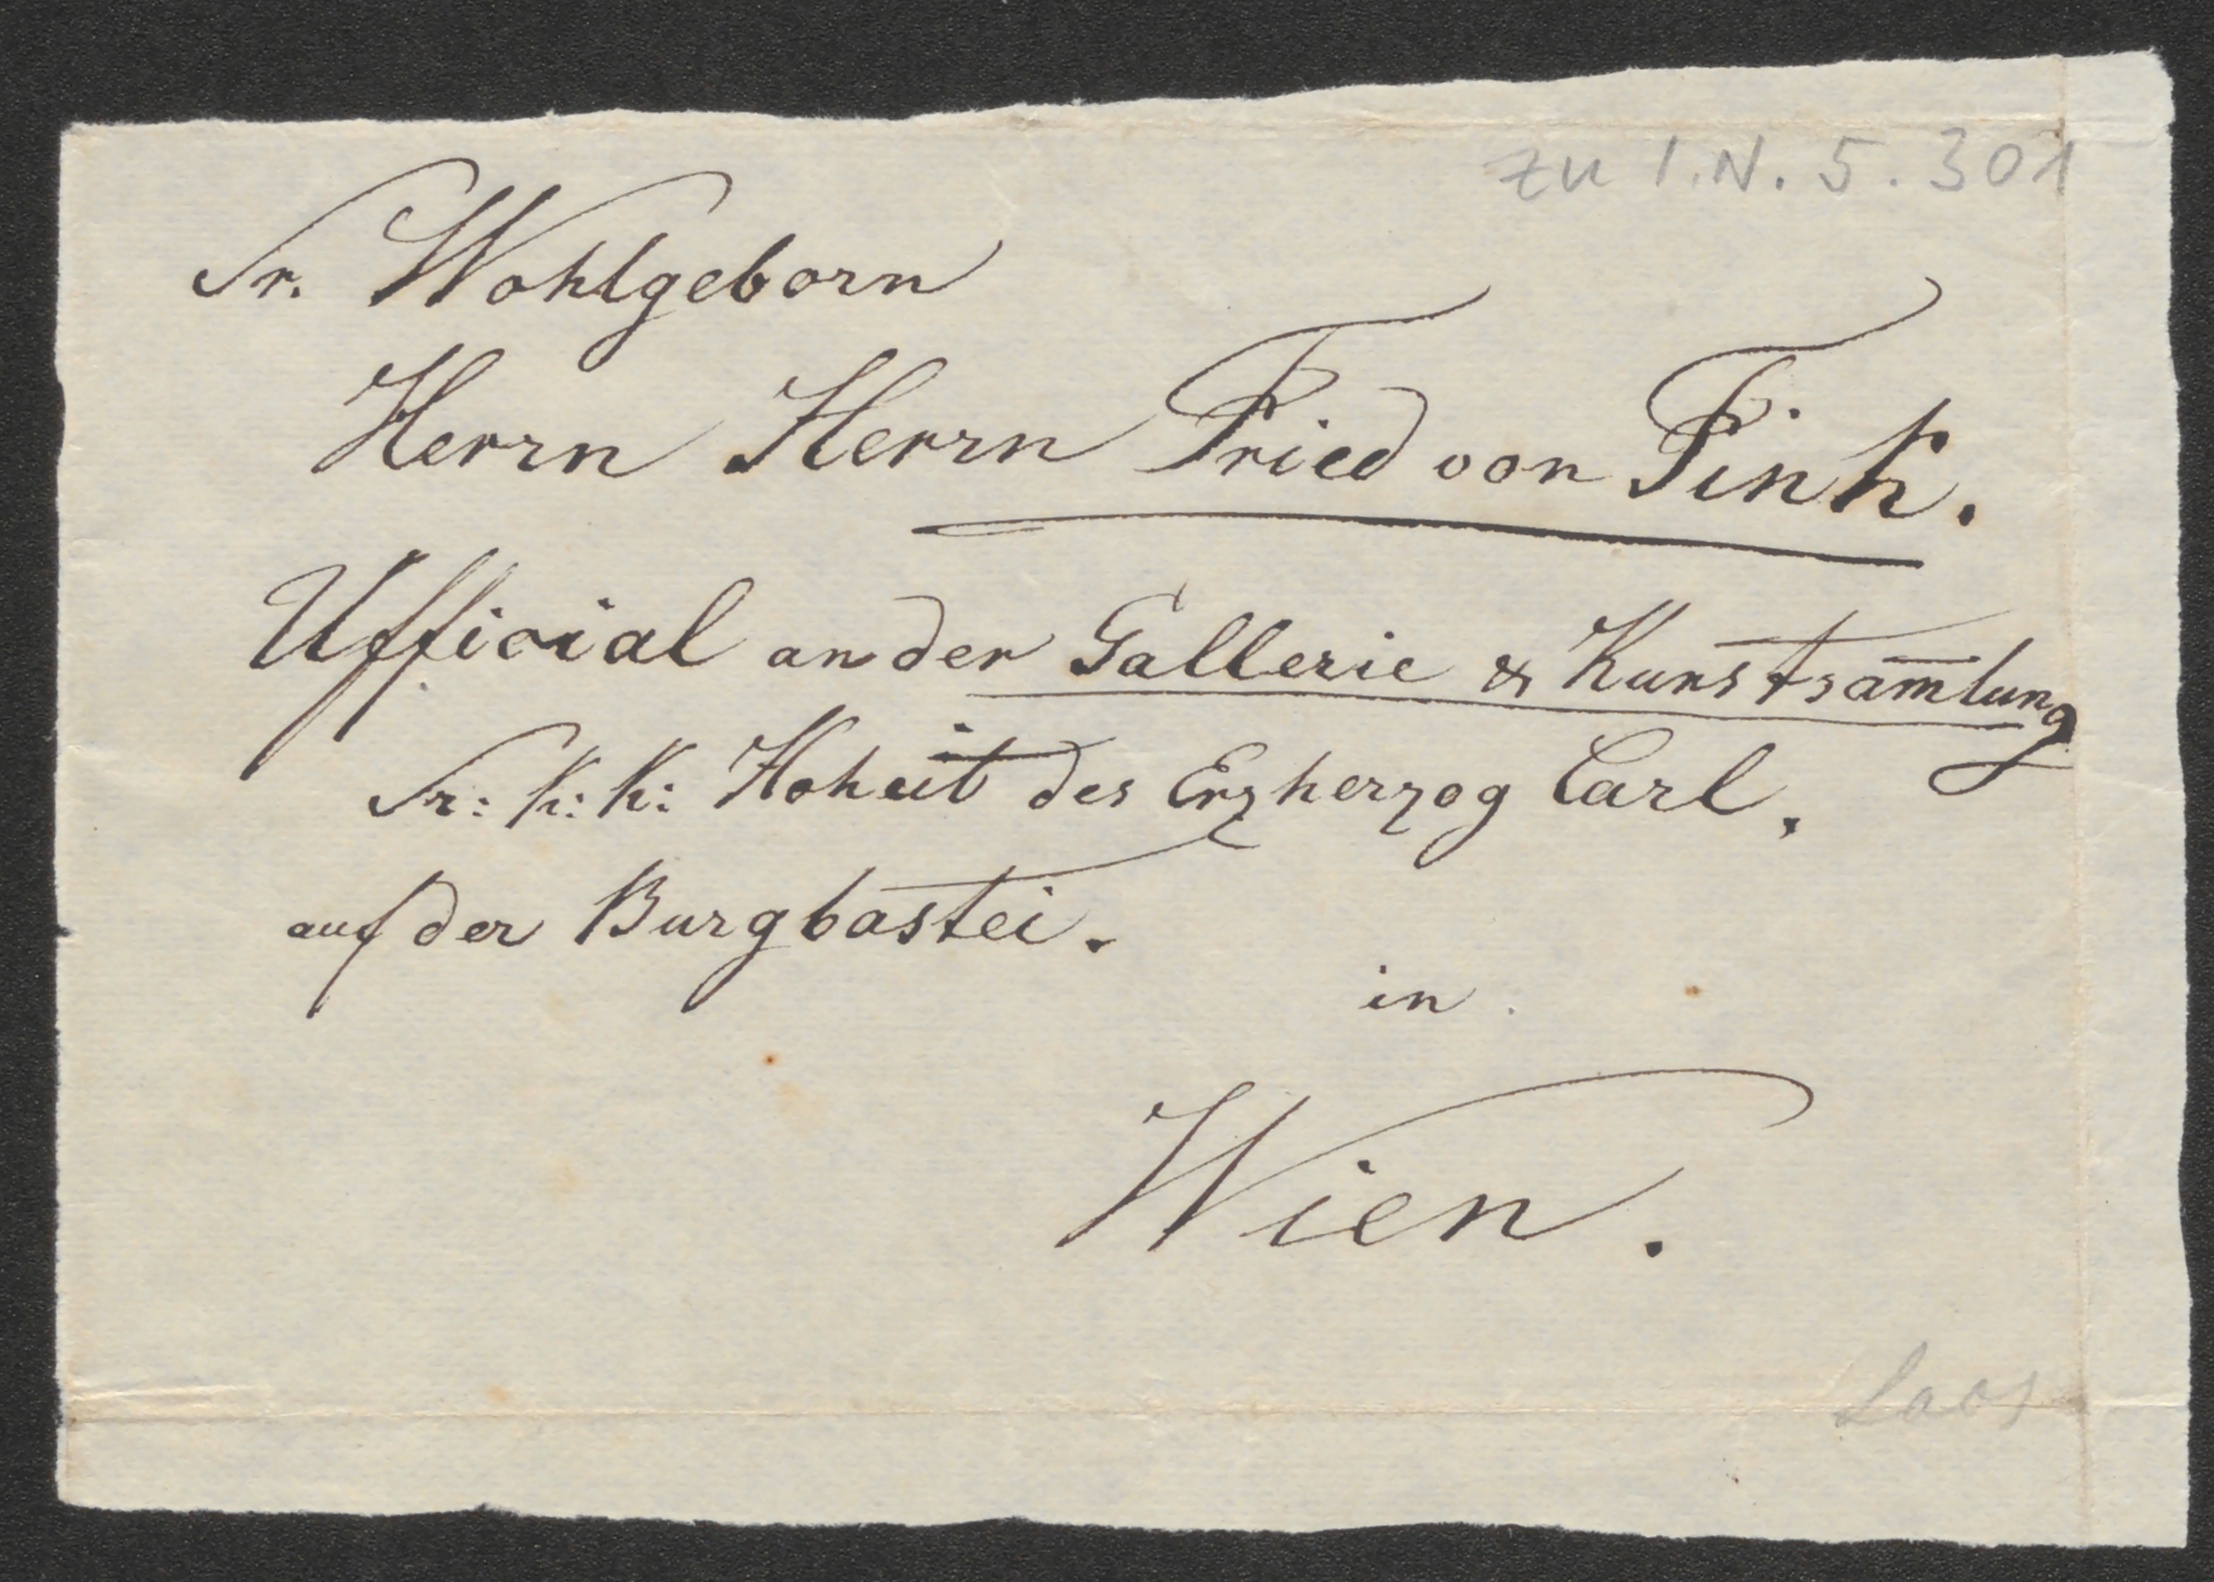 zu I.N. 5.301
Sr. Wohlgeborn
Herrn Herrn Fried von Fink.
Official an der Gallerie & Kunstsam̅lung
Sr: k: k: Hoheit des Erzherzog Carl.
auf der Burgbastei.
in
Wien.